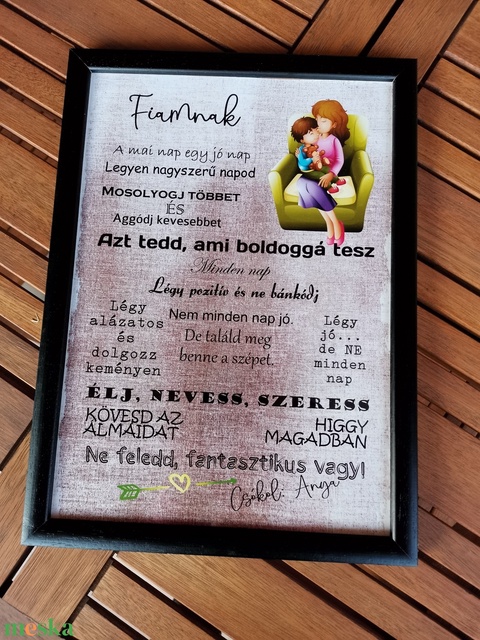 Fiamnak
A mai nap egy jó nap
Legyen nagyszerű napod
MOSOLYOGJ TÖBBET
ÉS
Aggódj kevesebbet
Azt tedd, ami boldoggá tesz
Minden nap
Légy pozitív és ne bánkódj
Légy
alázatos
és
dolgozz
keményen
Nem minden nap jó.
De találd meg
benne a szépet.
Légy
jó...
de NE
minden
nap
ÉLJ, NEVESS, SZERESS
KÖVESD AZ
ÁLMAIDAT
HIGGY
MAGADBAN
Ne feledd, fantasztikus vagy!
Csókol: Anya
meska